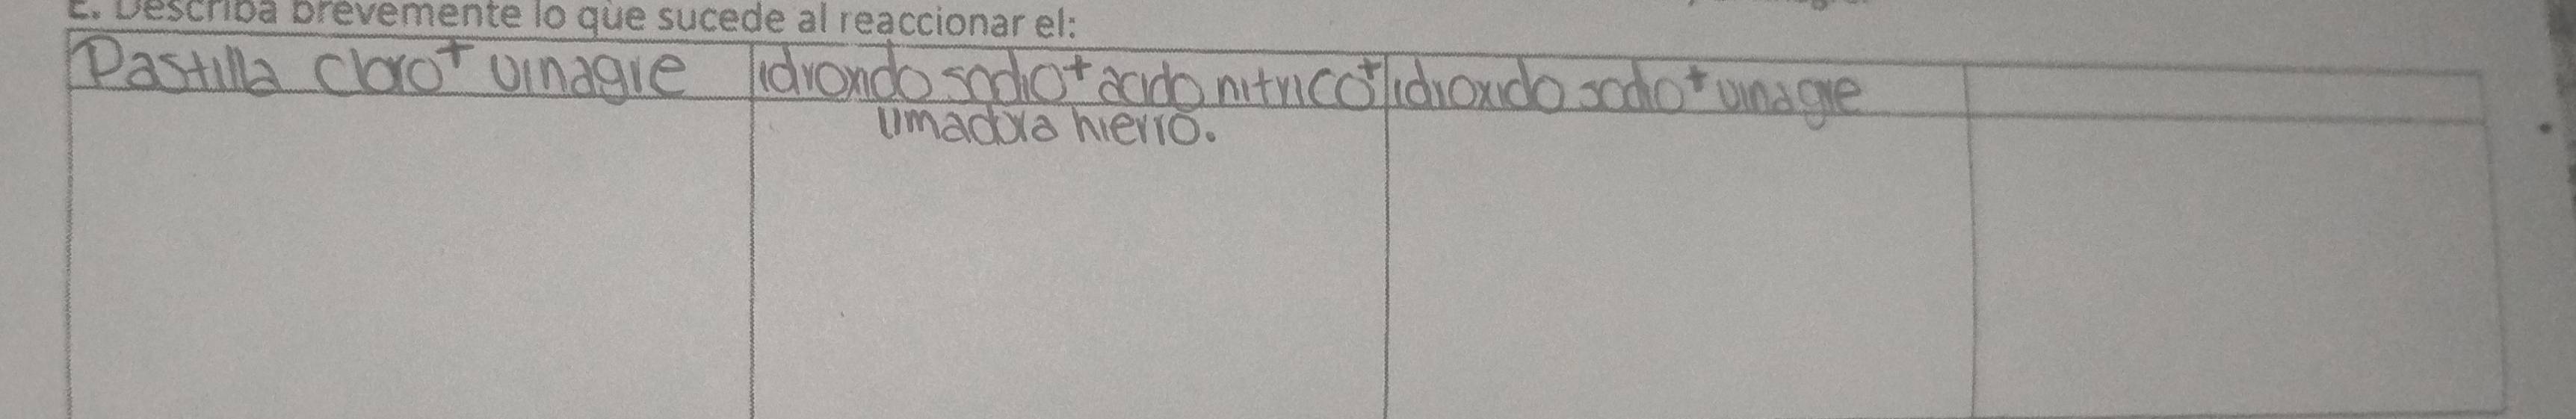 E. Describa brevemente lo que sucede al reaccionar el:
Pastilla cloro + vinagre
idroxido sodio + acido nitrico +
limadura hierro.
idioxido sodio + vinagre